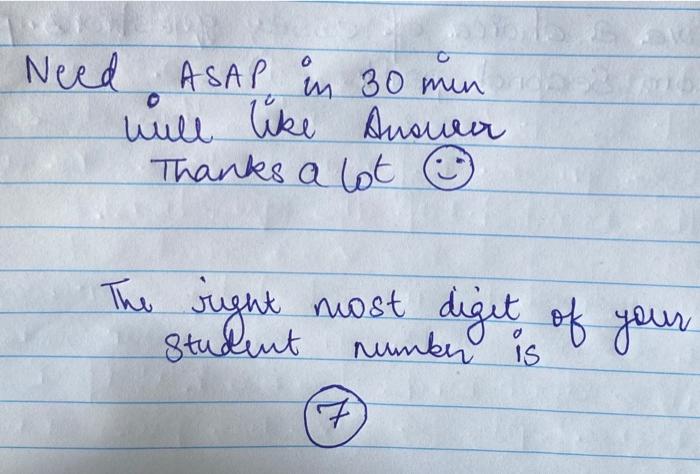 Need ASAP in 30 min
will like Answer
Thanks a lot ☺
The right most digit of your
student number is
7